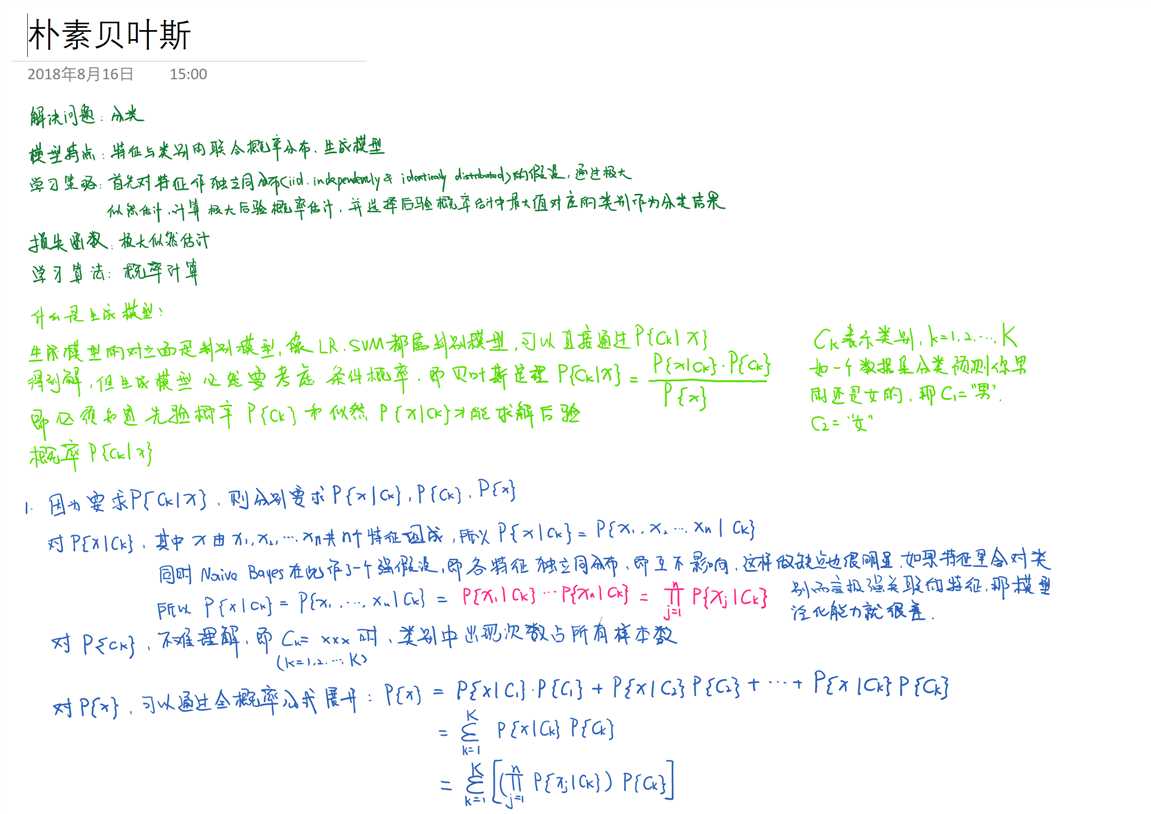 朴素贝叶斯
2018年8月16日 15:00
解决问题：分类
模型特点：特征与类别的联合概率分布，生成模型
学习策略：首先对特征作独立同分布(iid. independently & identically distributed)的假设，通过极大
似然估计，计算极大后验概率估计，并选择后验概率估计中最大值对应的类别作为分类结果
损失函数：极大似然估计
学习算法：概率计算
什么是生成模型：
生成模型的对立面是判别模型，像LR、SVM都属判别模型，可以直接通过P{Ck|x}
得到解，但生成模型必然要考虑条件概率，即贝叶斯定理 P{Ck|x} = P{x|Ck}·P{Ck} / P{x}
即必须知道先验概率 P{Ck} 和似然 P{x|Ck}才能求解后验
概率 P{Ck|x}
Ck表示类别，k=1,2,…,K
如一个数据是分类预测你男
的还是女的，那C1="男"，
C2="女"
1. 因为要求P{Ck|x}，则分别要求P{x|Ck}，P{Ck}，P{x}
对P{x|Ck}，其中x由x1,x2,…xn共n个特征组成，所以P{x|Ck} = P{x1,x2…xn|Ck}
同时Naive Bayes在此作了一个强假设，即各特征独立同分布，即互不影响，这样做缺点也很明显，如果特征里含对类
别而言极强关联的特征，那模型
泛化能力就很差.
所以 P{x|Ck} = P{x1,…,xn|Ck} = P{x1|Ck}…P{xn|Ck} = ∏_{j=1}^{n} P{xj|Ck}
对P{Ck}，不难理解，即Ck=xxx时，类别中出现次数占所有样本数
(k=1,2,…,K)
对P{x}，可以通过全概率公式展开：P{x} = P{x|C1}·P{C1} + P{x|C2}P{C2} + … + P{x|Ck}P{Ck}
= ∑_{k=1}^{K} P{x|Ck} P{Ck}
= ∑_{k=1}^{K} [(∏_{j=1}^{n} P{xj|Ck}) P{Ck}]